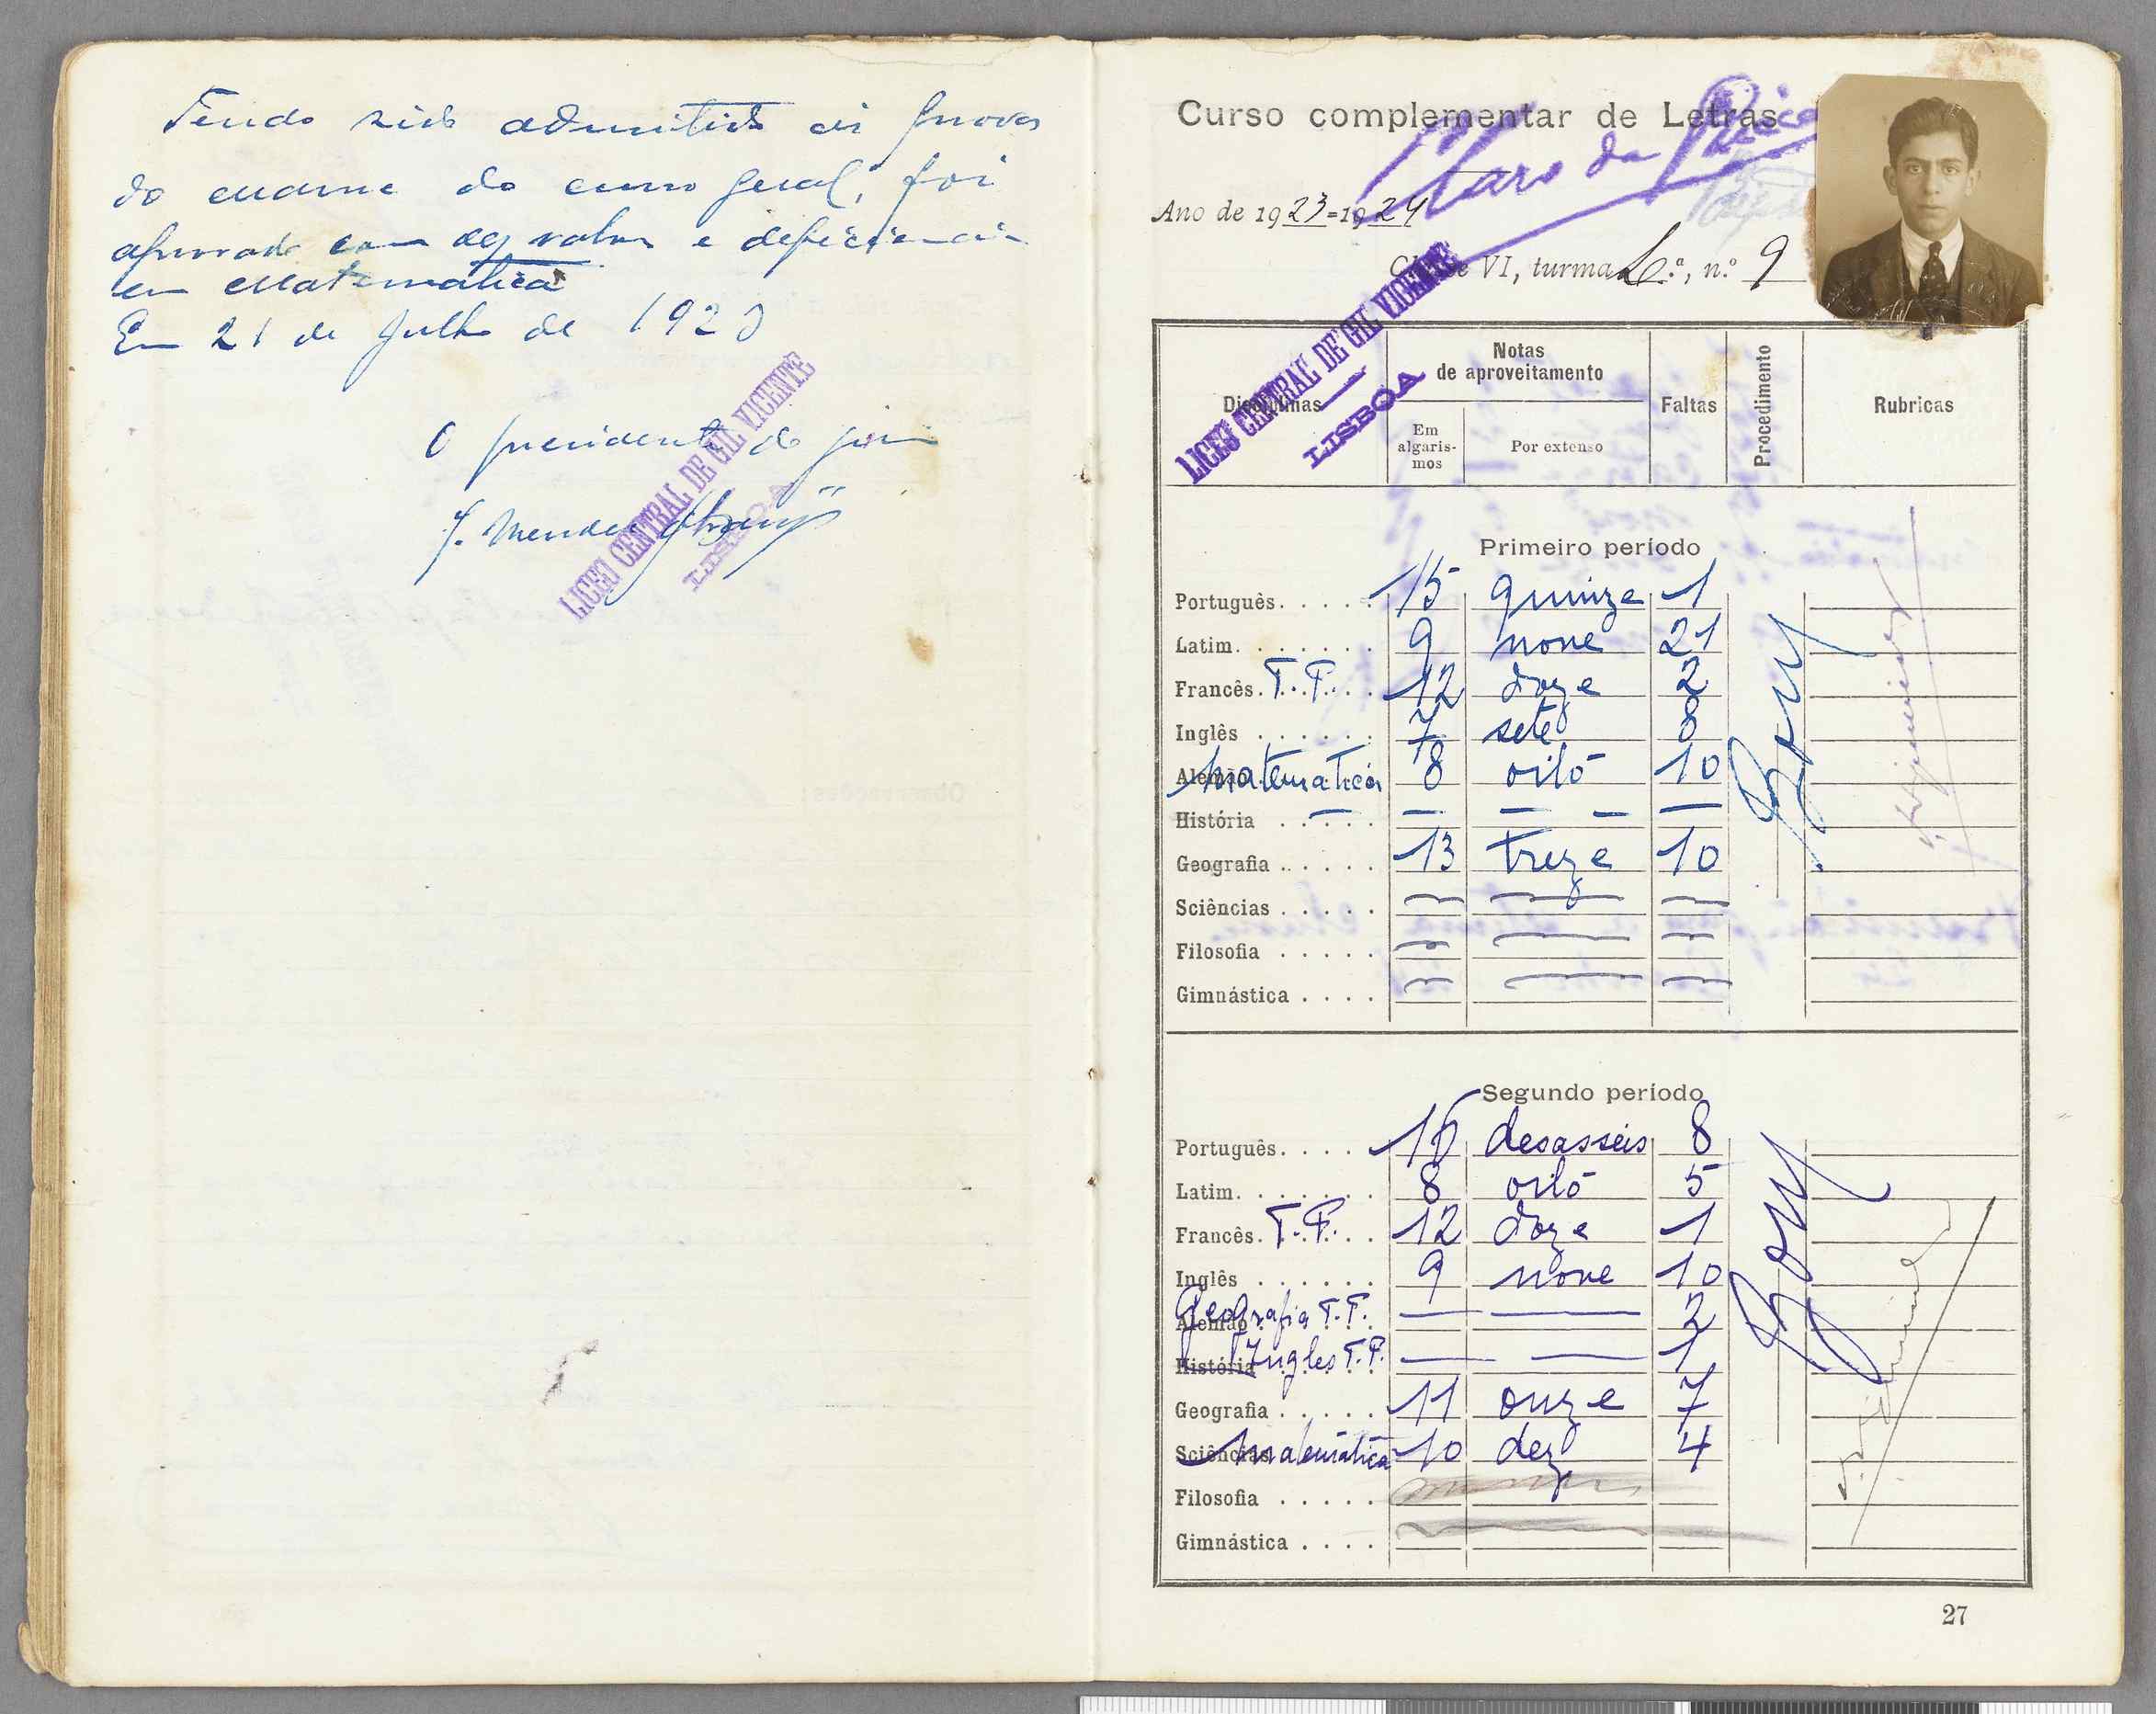 Tendo sido admitido ás provas
do exame do curso geral, foi
aprovado com dez valores e deficiencia
em Matematica
Em 21 de Julho de 1923
O presidente do juri
J. Mendes
LICEU CENTRAL DE GIL VICENTE
LISBOA
Curso complementar de Letras
Claro da
Ano de 1923=1924
Classe VI, turma L.ª, n.º 9
LICEU CENTRAL DE GIL VICENTE
LISBOA
Disciplinas Notas de aproveitamento Faltas Procedimento Rubricas
Em algaris-mos Por extenso
Primeiro período
Português. . . . . 15 quinze 1
Latim. . . . . . . 9 nove 21
Francês. T. P. . . 12 doze 2
Inglês . . . . . . 7 sete 8
Alemão Matematica 8 oito 10
História . . . . . — — — —
Geografia . . . . . 13 treze 10
Sciências . . . . .
Filosofia . . . . .
Gimnástica . . . .
Bom
Segundo período
Português. . . . . 16 desasseis 8
Latim. . . . . . . 8 oito 5
Francês. T. P. . . 12 doze 1
Inglês . . . . . . 9 nove 10
Alemão Geografia T. P. — — 2
História Ingles T. P. — — 1
Geografia . . . . . 11 onze 7
Sciências Matemática 10 dez 4
Filosofia . . . . .
Gimnástica . . . .
Bom
27